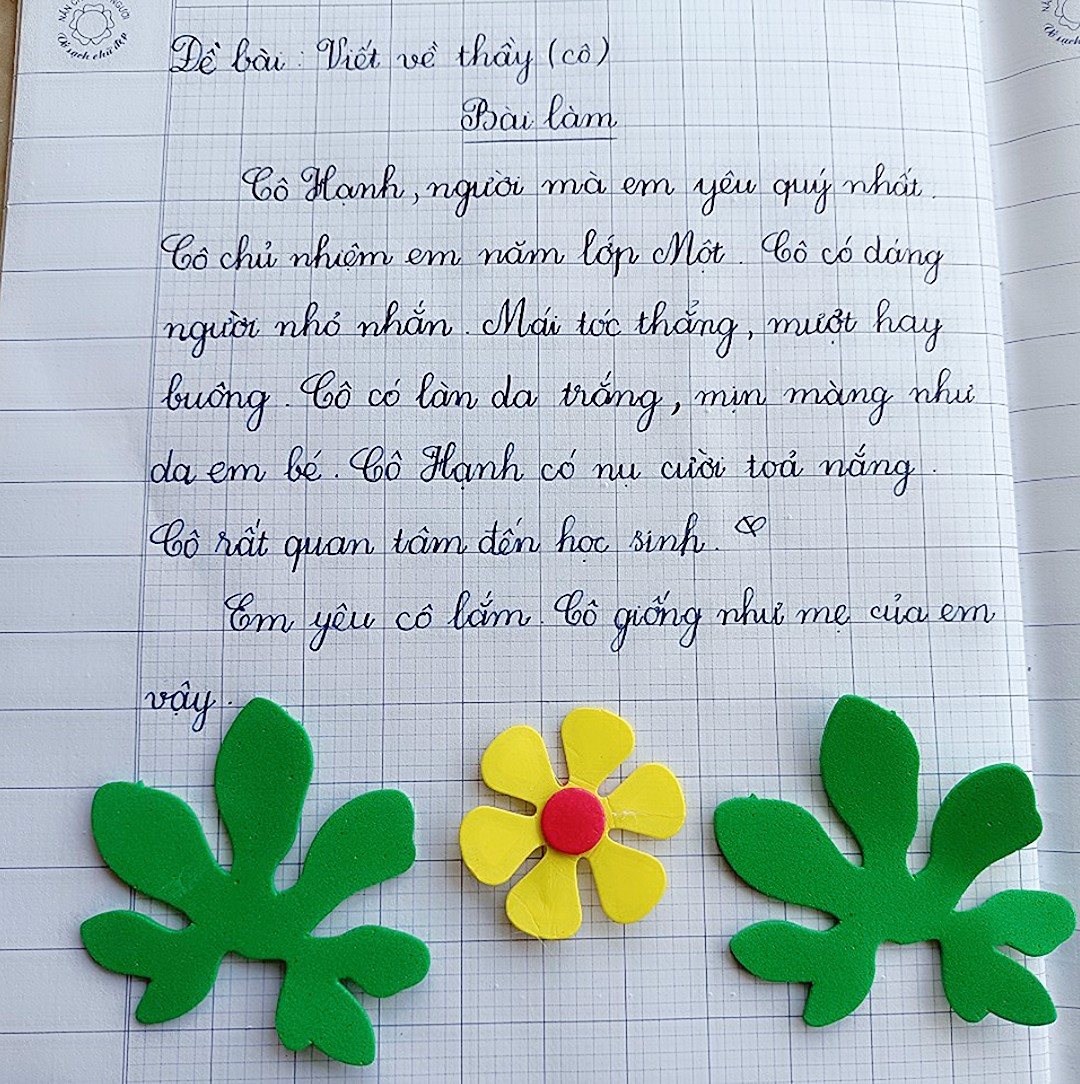 NẮN C NGƯỜI
Vở sạch chữ đẹp
Đề bài : Viết về thầy (cô)
Bài làm
Cô Hạnh, người mà em yêu quý nhất.
Cô chủ nhiệm em năm lớp Một. Cô có dáng
người nhỏ nhắn. Mái tóc thẳng, mượt hay
buông. Cô có làn da trắng, mịn màng như
da em bé. Cô Hạnh có nụ cười toả nắng.
Cô rất quan tâm đến học sinh.
Em yêu cô lắm. Cô giống như mẹ của em
vậy.